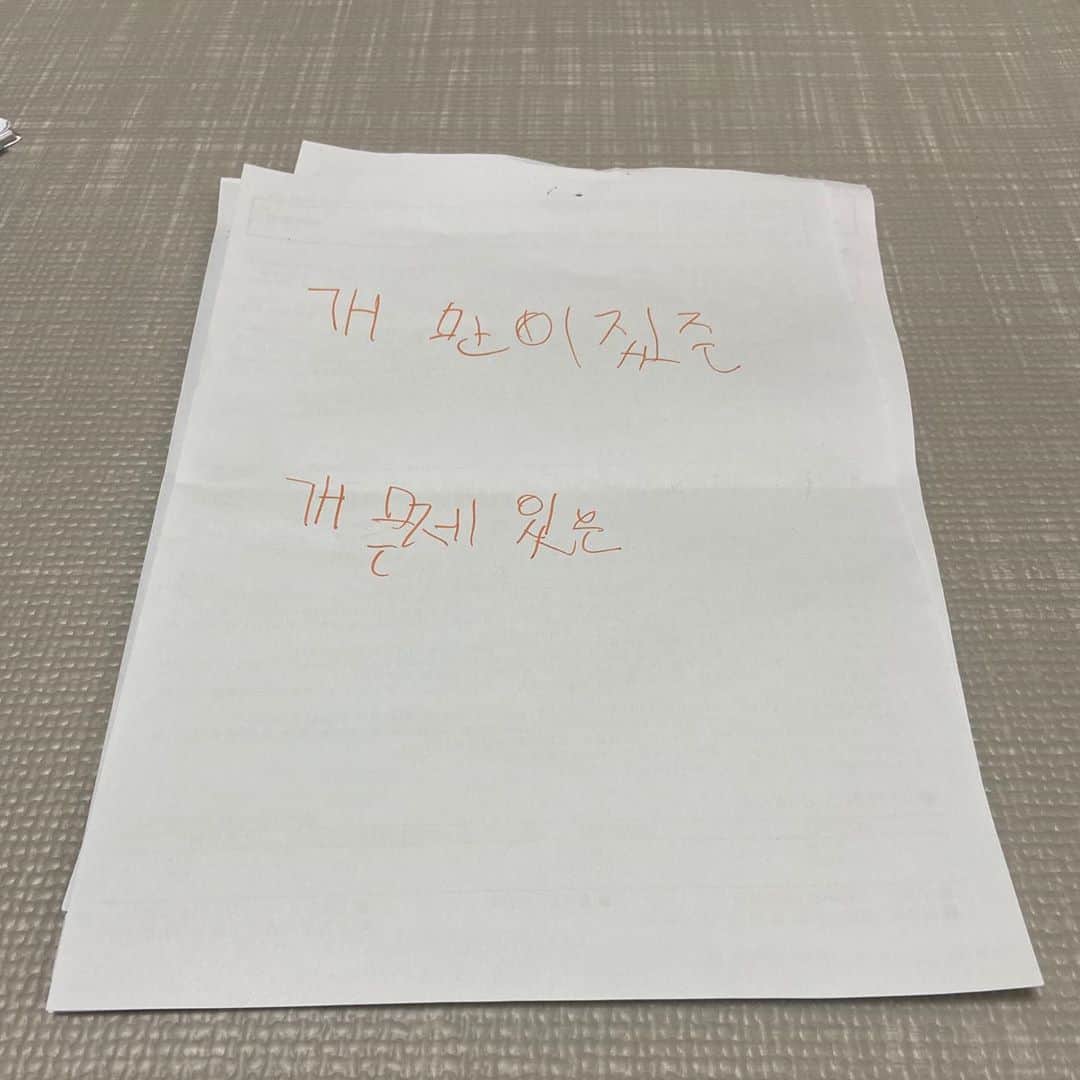 개 만이짔준
개 문제 있는